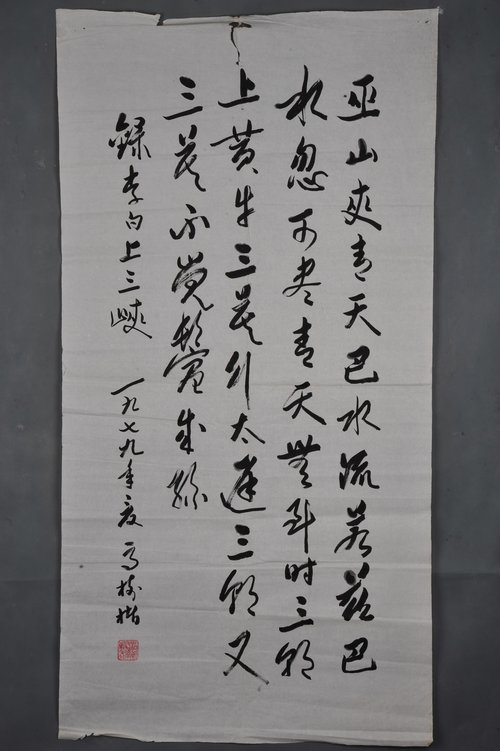 巫山夾青天巴水流若茲巴
水忽可尽青天無到时三朝
上黄牛三暮行太遲三朝又
三暮不覺鬢成絲
錄李白上三峽 一九七九年夏